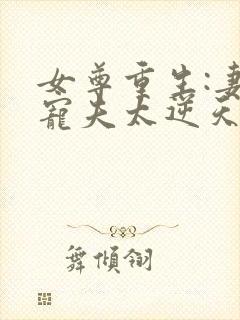 女尊重生:妻
寵夫太逆天
舞傾翎